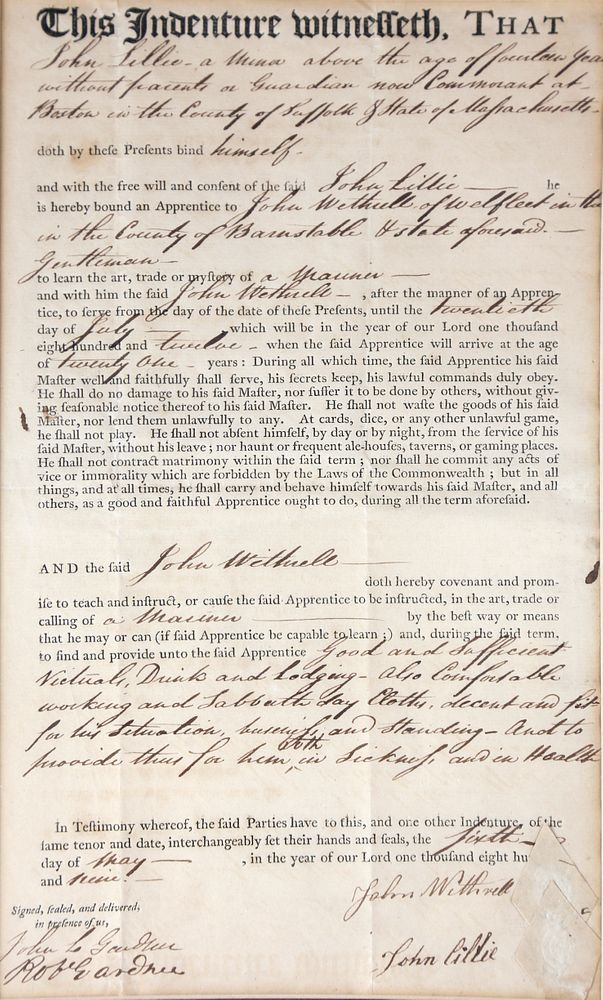 This Indenture witneſſeth, THAT
John Lillie - a Minor above the age of fourteen years
without parents or Guardian now Commorant at -
Boston in the County of Suffolk & State of Maſsachusetts -
doth by theſe Preſents bind himself -
and with the free will and conſent of the ſaid John Lillie — he
is hereby bound an Apprentice to John Wethrell of Welfleet in the
in the County of Barnstable & state aforesaid. —
Gentleman —
to learn the art, trade or myſtery of a Mariner —
and with him the ſaid John Wethrell — , after the manner of an Appren-
tice, to ſerve from the day of the date of theſe Preſents, until the twentieth
day of July — which will be in the year of our Lord one thouſand
eight hundred and twelve - when the ſaid Apprentice will arrive at the age
of twenty one - years : During all which time, the ſaid Apprentice his ſaid
Maſter well and faithfully ſhall ſerve, his ſecrets keep, his lawful commands duly obey.
He ſhall do no damage to his ſaid Maſter, nor ſuffer it to be done by others, without giv-
ing ſeaſonable notice thereof to his ſaid Maſter. He ſhall not waſte the goods of his ſaid
Maſter, nor lend them unlawfully to any. At cards, dice, or any other unlawful game,
he ſhall not play. He ſhall not abſent himſelf, by day or by night, from the ſervice of his
ſaid Maſter, without his leave ; nor haunt or frequent ale-houſes, taverns, or gaming places.
He ſhall not contract matrimony within the ſaid term ; nor ſhall he commit any acts of
vice or immorality which are forbidden by the Laws of the Commonwealth ; but in all
things, and at all times, he ſhall carry and behave himſelf towards his ſaid Maſter, and all
others, as a good and faithful Apprentice ought to do, during all the term aforeſaid.
AND the ſaid John Wethrell —
doth hereby covenant and prom-
iſe to teach and inſtruct, or cauſe the ſaid Apprentice to be inſtructed, in the art, trade or
calling of a Mariner — by the beſt way or means
that he may or can (if ſaid Apprentice be capable to learn ;) and, during the ſaid term,
to find and provide unto the ſaid Apprentice Good and Sufficient
Victuals, Drink and Lodging - also Comfortable
working and Sabbath day Cloths, decent and fit
for his Situation, busineſs, and Standing - And to
provide thus for him, both in Sickneſs, and in Health
In Teſtimony whereof, the ſaid Parties have to this, and one other Indenture, of the
ſame tenor and date, interchangeably ſet their hands and ſeals, the Sixth -
day of May — , in the year of our Lord one thouſand eight hu
and nine. —
John Wethrell
Signed, ſealed, and delivered,
in preſence of us,
John Gardner
Robt Gardner
John Lillie